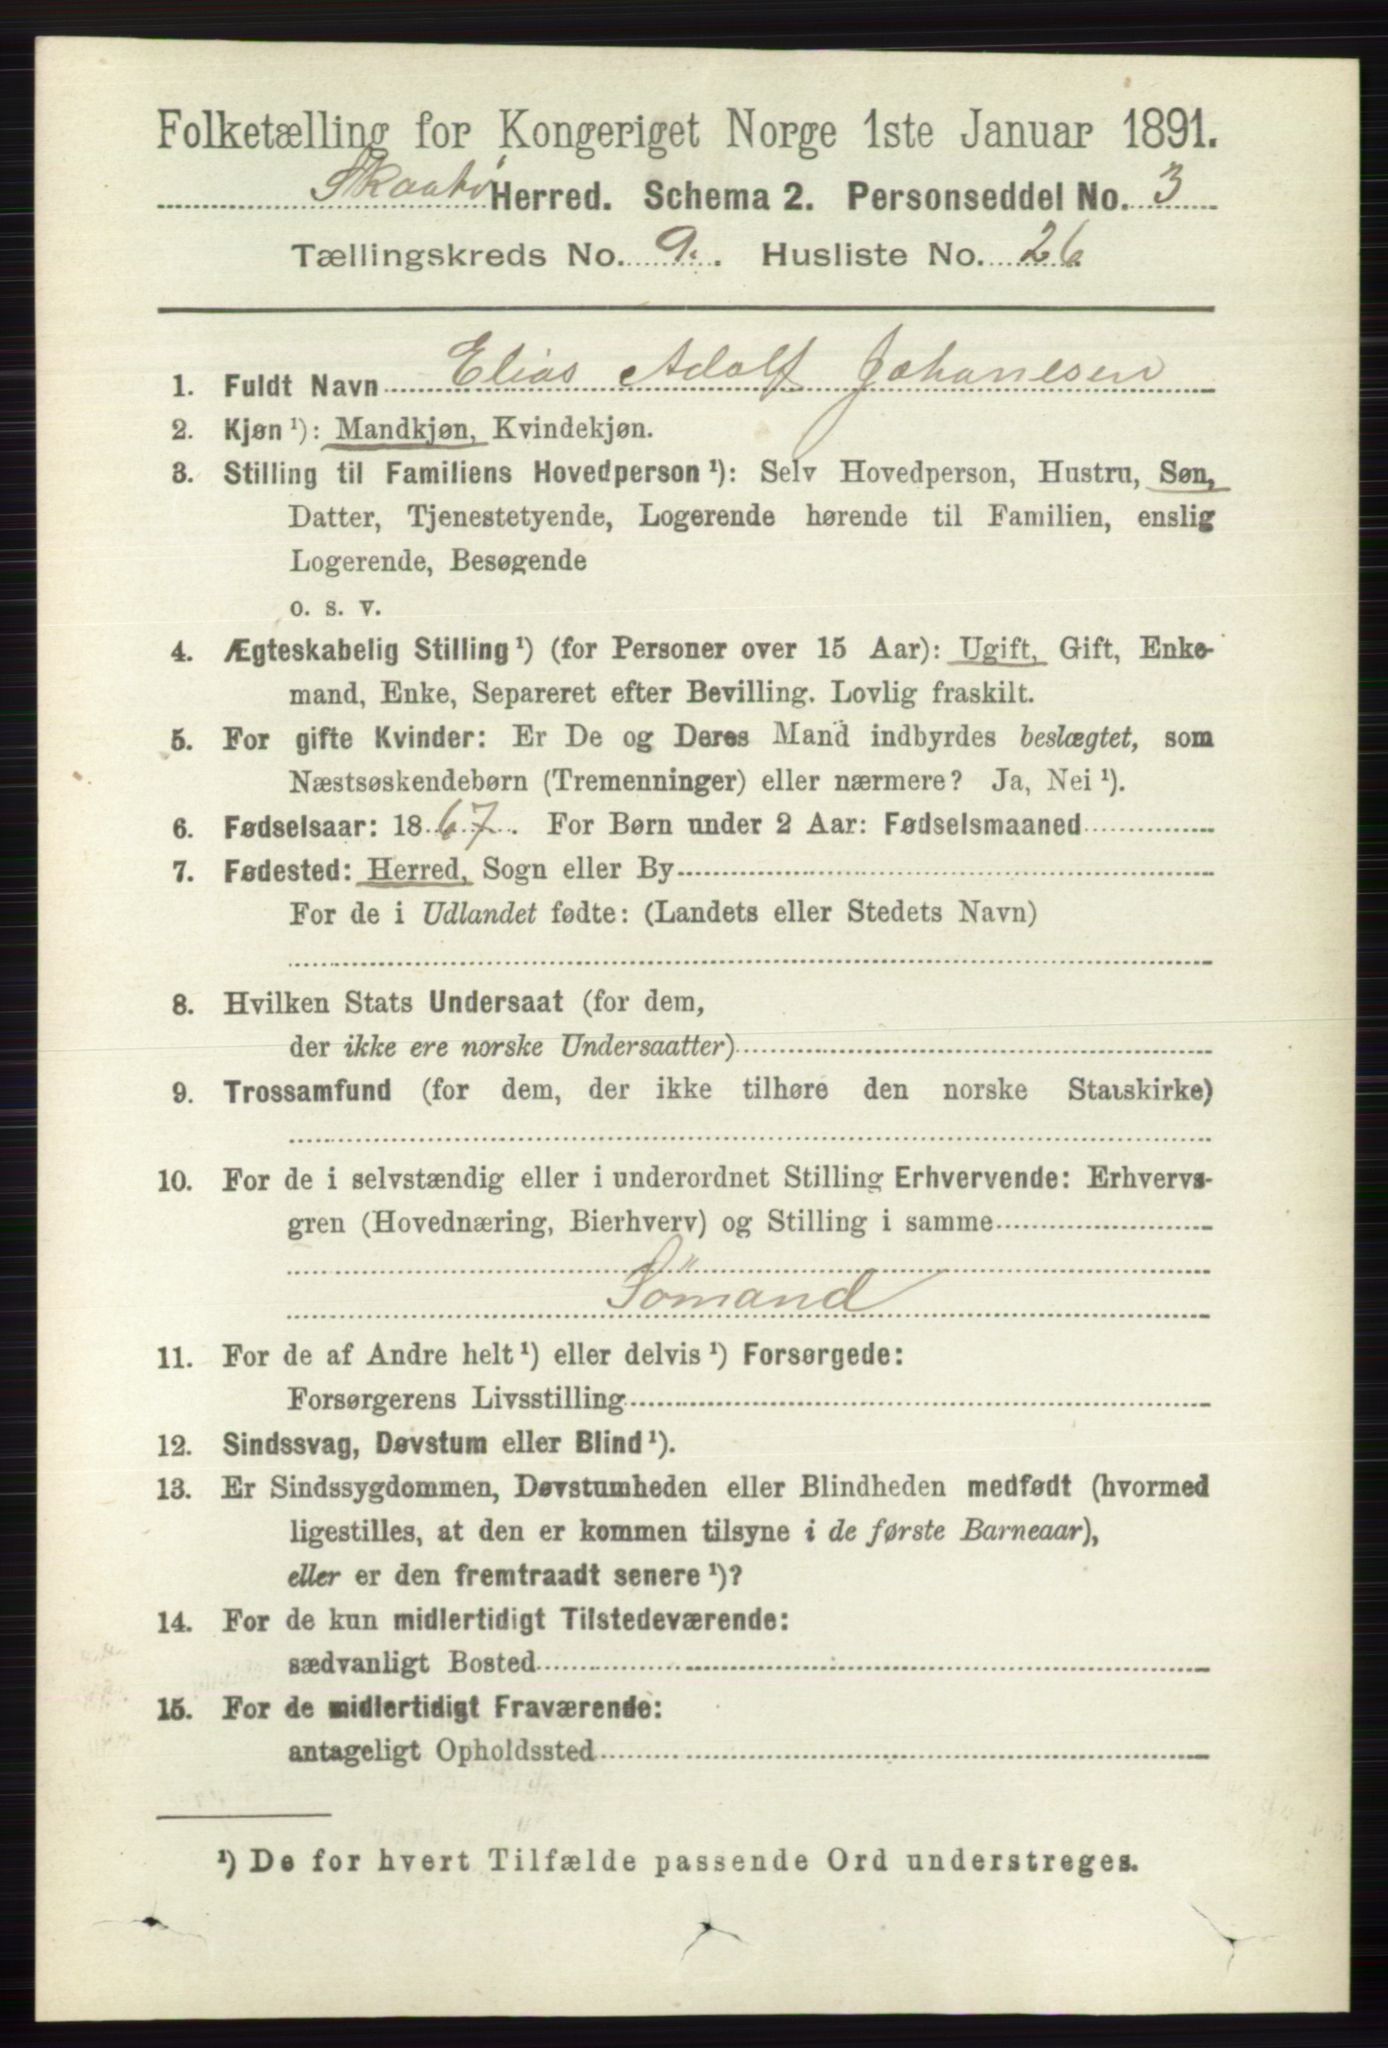 Folketælling for Kongeriget Norge 1ste Januar 1891.
Skaatø Herred. Schema 2. Personseddel No. 3
Tællingskreds No. 9. Husliste No. 26
1. Fuldt Navn Elias Adolf Johanesen
2. Kjøn¹): Mandkjøn, Kvindekjøn.
3. Stilling til Familiens Hovedperson¹): Selv Hovedperson, Hustru, Søn,
Datter, Tjenestetyende, Logerende hørende til Familien, enslig
Logerende, Besøgende
o. s. v.
4. Ægteskabelig Stilling¹) (for Personer over 15 Aar): Ugift, Gift, Enke-
mand, Enke, Separeret efter Bevilling. Lovlig fraskilt.
5. For gifte Kvinder: Er De og Deres Mand indbyrdes beslægtet, som
Næstsøskendebørn (Tremenninger) eller nærmere? Ja, Nei¹).
6. Fødselsaar: 1867. For Børn under 2 Aar: Fødselsmaaned
7. Fødested: Herred, Sogn eller By
For de i Udlandet fødte: (Landets eller Stedets Navn)
8. Hvilken Stats Undersaat (for dem,
der ikke ere norske Undersaatter)
9. Trossamfund (for dem, der ikke tilhøre den norske Statskirke)
10. For de i selvstændig eller i underordnet Stilling Erhvervende: Erhvervs-
gren (Hovednæring, Bierhverv) og Stilling i samme
Sömand
11. For de af Andre helt¹) eller delvis¹) Forsørgede:
Forsørgerens Livsstilling
12. Sindssvag, Døvstum eller Blind¹).
13. Er Sindssygdommen, Døvstumheden eller Blindheden medfødt (hvormed
ligestilles, at den er kommen tilsyne i de første Barneaar),
eller er den fremtraadt senere¹)?
14. For de kun midlertidigt Tilstedeværende:
sædvanligt Bosted
15. For de midlertidigt Fraværende:
antageligt Opholdssted
¹) De for hvert Tilfælde passende Ord understreges.